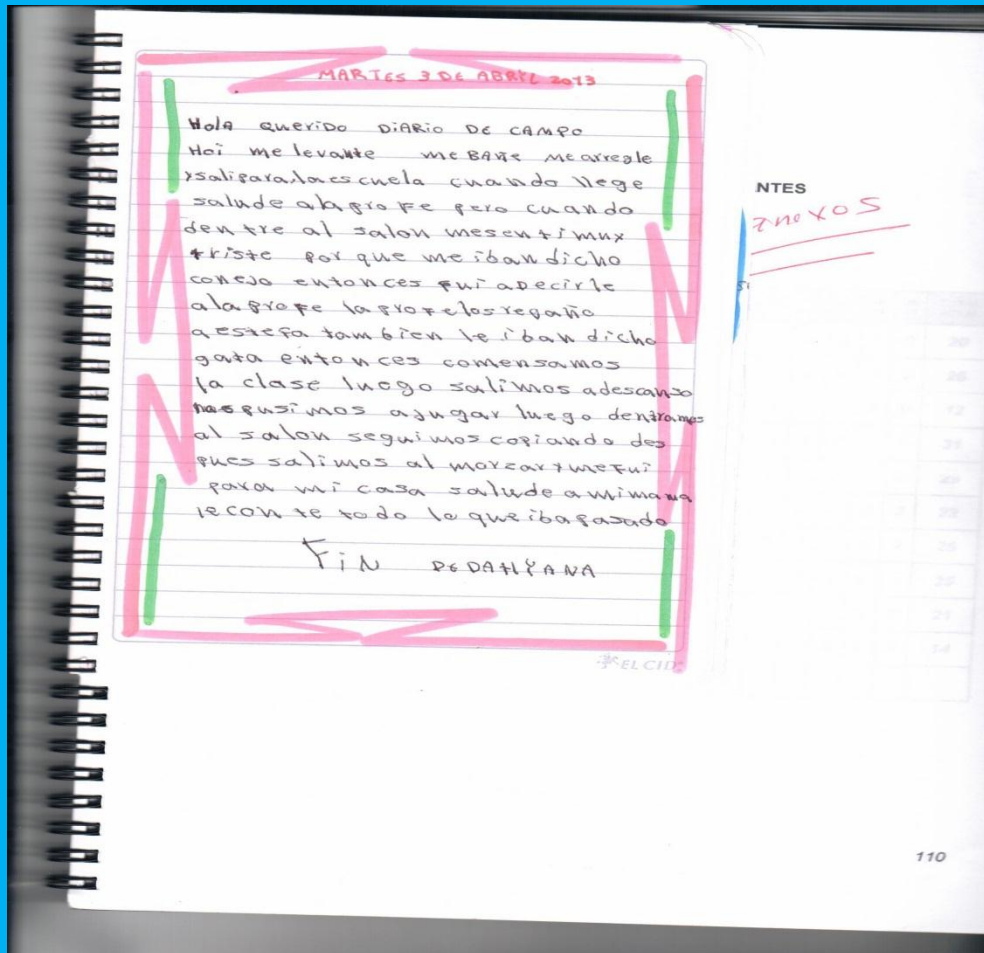 MARTES 3 DE ABRYL 2013
Hola QUERIDO DIARIO DE CAMPO
Hoi me levante me BAÑE Me arregle
ysalipara la escuela cuando llege
salude alaprofe pero cuando
dentre al salon mesenti muy
triste por que me iban dicho
conejo entonces fui aDecirle
alaprofe laprofelosregaño
a estefa tambien le iban dicho
gata entonces comensamos
la clase luego salimos adescanso
nospusimos ajugar luego dentramos
al salon seguimos copiando des
pues salimos al morzar y mefui
para mi casa salude amimama
le conte todo lo queibapasado
FiN DE DAHYANA
EL CID
NTES
Anexos
110